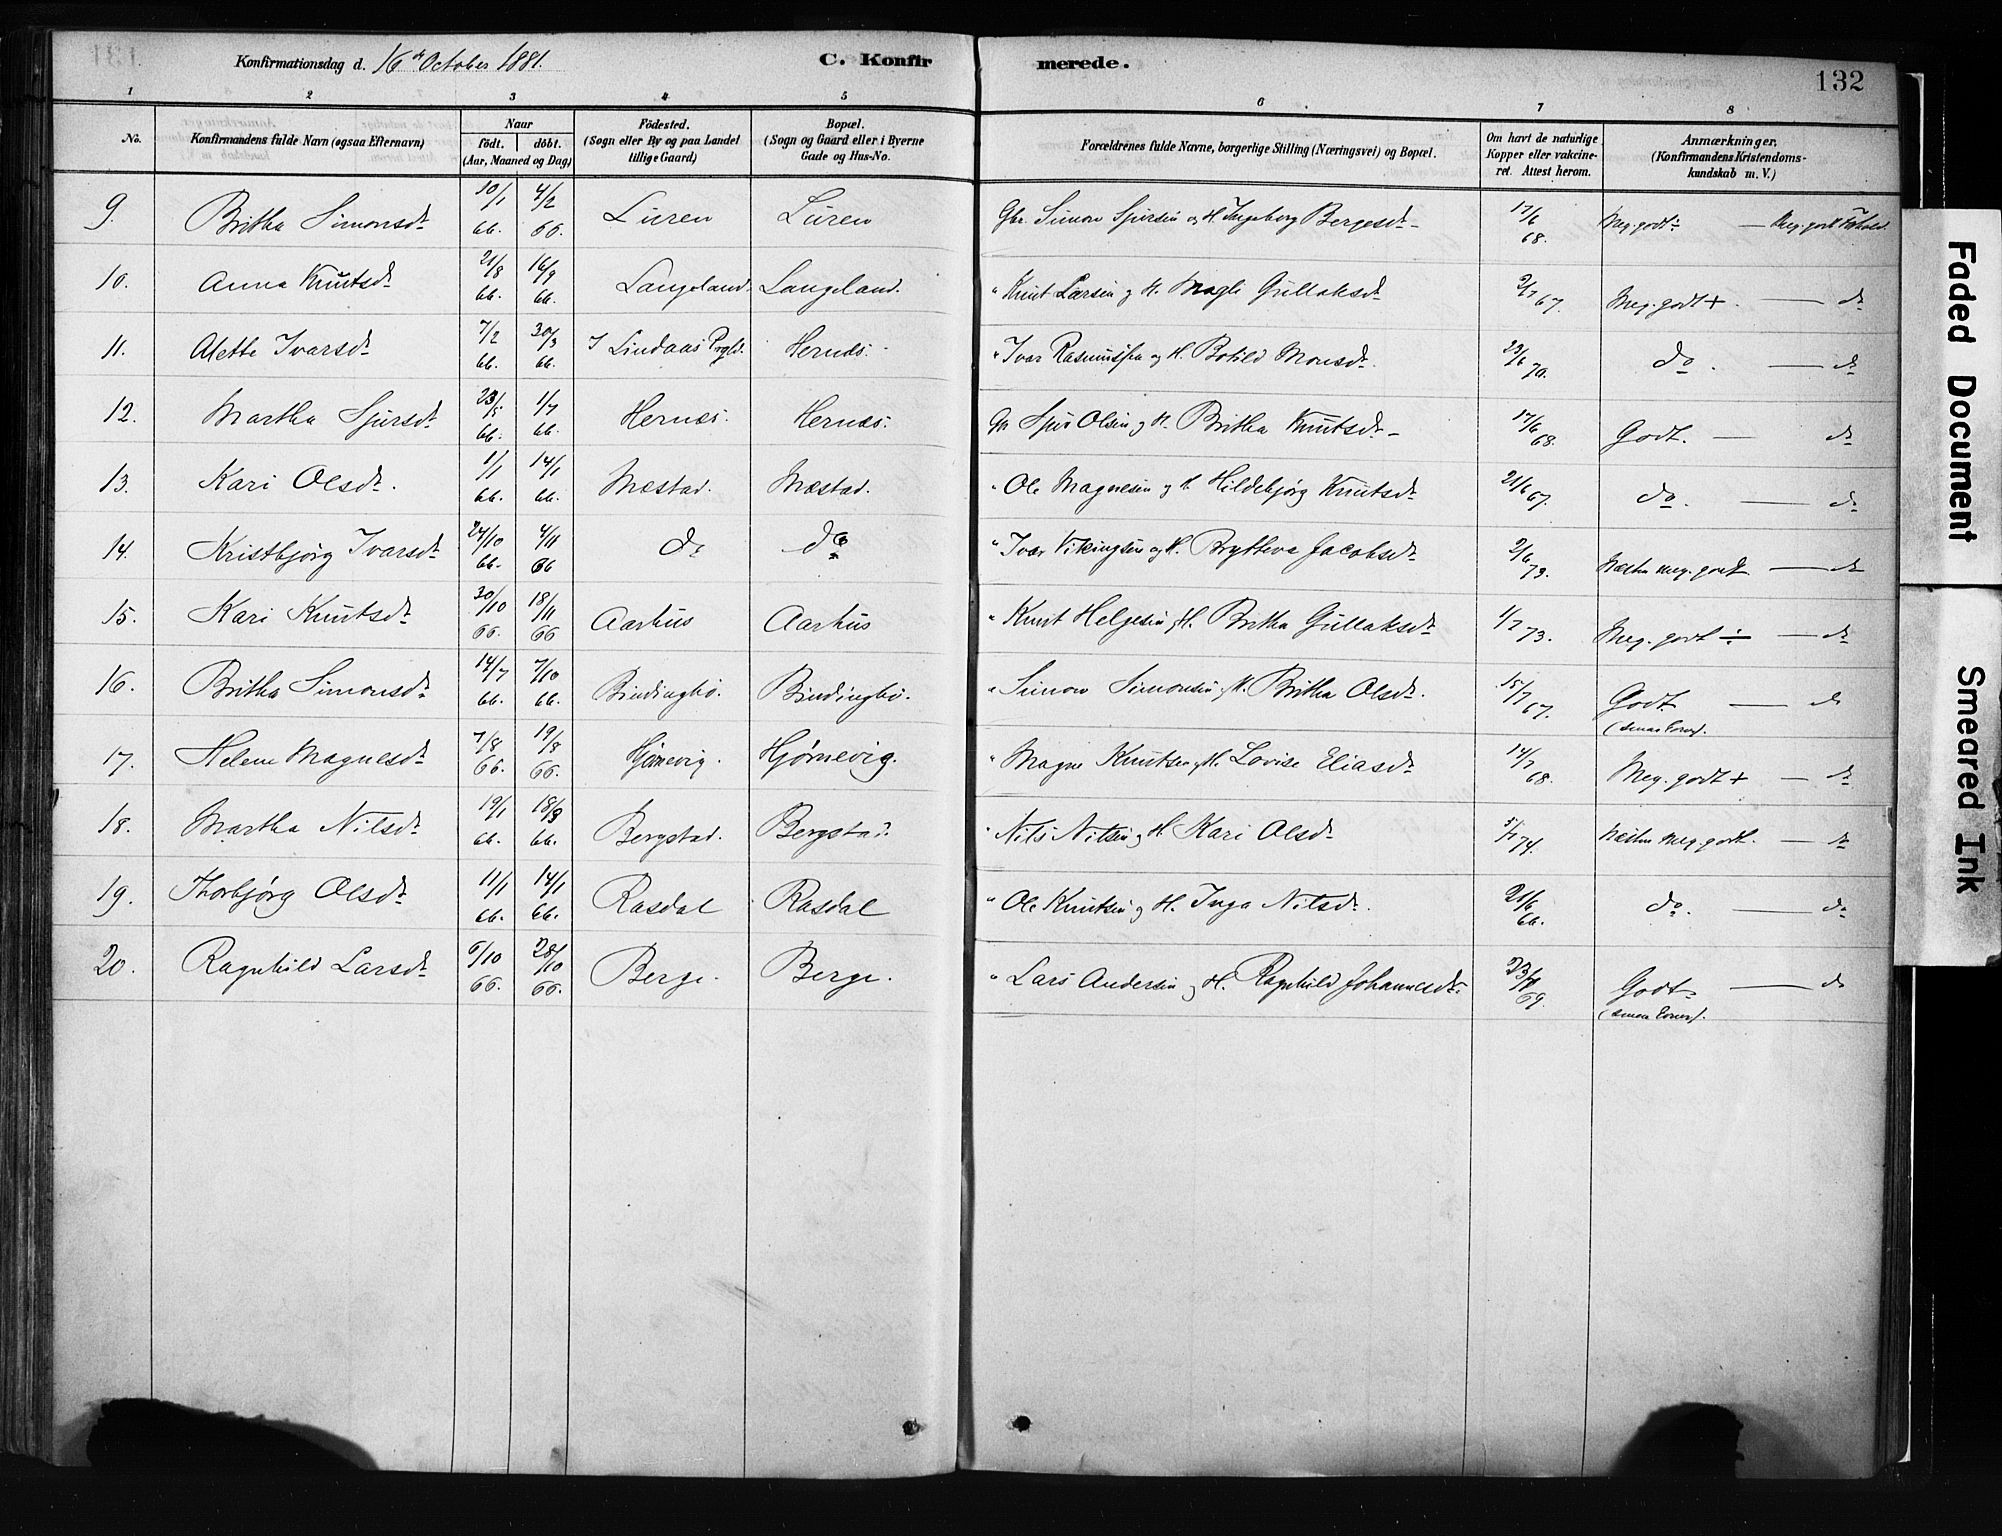 Konfirmationsdag d. 16de October 1881.
C. Konfirmerede.
132
1 2 3 4 5 6 7 8
No.
Konfirmandens fulde Navn (ogsaa Efternavn)
Naar
födt. döbt.
(Aar, Maaned og Dag)
Födested.
(Sogn eller By og paa Landet
tillige Gaard)
Bopæl.
(Sogn og Gaard eller i Byerne
Gade og Hus-No.
Forældrenes fulde Navne, borgerlige Stilling (Næringsvei) og Bopæl.
Om havt de naturlige
Kopper eller vakcine-
ret. Attest herom.
Anmærkninger,
(Konfirmandens Kristendoms-
kundskab m. V.)
9. Britha Simonsdr 10/1 66. 4/2 66. Luren Luren Gbr. Simon Sjursen og H. Ingeborg Bergesdr 17/6 68. Meg. godt — Meg. godt Forhold
10. Anna Knutsdr 21/8 66. 16/9 66. Langeland. Langeland. " Knut Larsen og H. Magli Gullaksdr 2/7 67. Meg. godt + — do
11. Alette Ivarsdr 7/2 66. 30/3 66. I Lindaas Prgld. Hernes. " Ivar Rasmussen og H. Botild Monsdr. 23/6 70. do. — do
12. Martha Sjursdr 23/5 66. 1/7 66. Hernes. Hernes. Gbr Sjur Olsen og H. Britha Knutsdr 17/6 68. Godt. — do
13. Kari Olsdr. 1/1 66. 14/1 66. Mestad. Mestad. " Ole Magnesen og H. Hildebjørg Knutsdr 21/6 67. do. — do
14. Kristbjörg Ivarsdr 24/10 66. 4/11 66 do do " Ivar Vikingsen og H. Brytteva Jacobsdr 2/6 73. Næsten meg. godt — do
15. Kari Knutsdr 30/10 66. 18/11 66 Aarhus Aarhus " Knut Helgesen og H. Britha Gullaksdr 1/7 73. Meg. godt ÷ — do
16. Britha Simonsdr 14/7 66. 7/10 66. Bindingbø. Bindingbø. " Simon Simonsen og H. Britha Olsdr. 15/7 67. Godt — do
17. Helene Magnesdr 7/8 66. 19/8 66. Hjørnevig. Hjørnevig. " Magne Knutsen og H. Lovise Eliasdr 14/7 68. Meg. godt + — do
18. Martha Nilsdr 19/1 66. 18/3 66. Bergstad. Bergstad. " Nils Nilsen og H. Kari Olsdr 5/7 74. Næsten meg. godt. — do
19. Thorbjørg Olsdr 11/1 66. 14/1 66. Rasdal Rasdal " Ole Knutsen og H. Inga Nilsdr. 21/6 66. do. — do
20. Ragnhild Larsdr 6/10 66. 28/10 66. Berge. Berge. " Lars Andersen og H. Ragnhild Johannesdr. 69. Godt — do
Faded Document
Smeared Ink